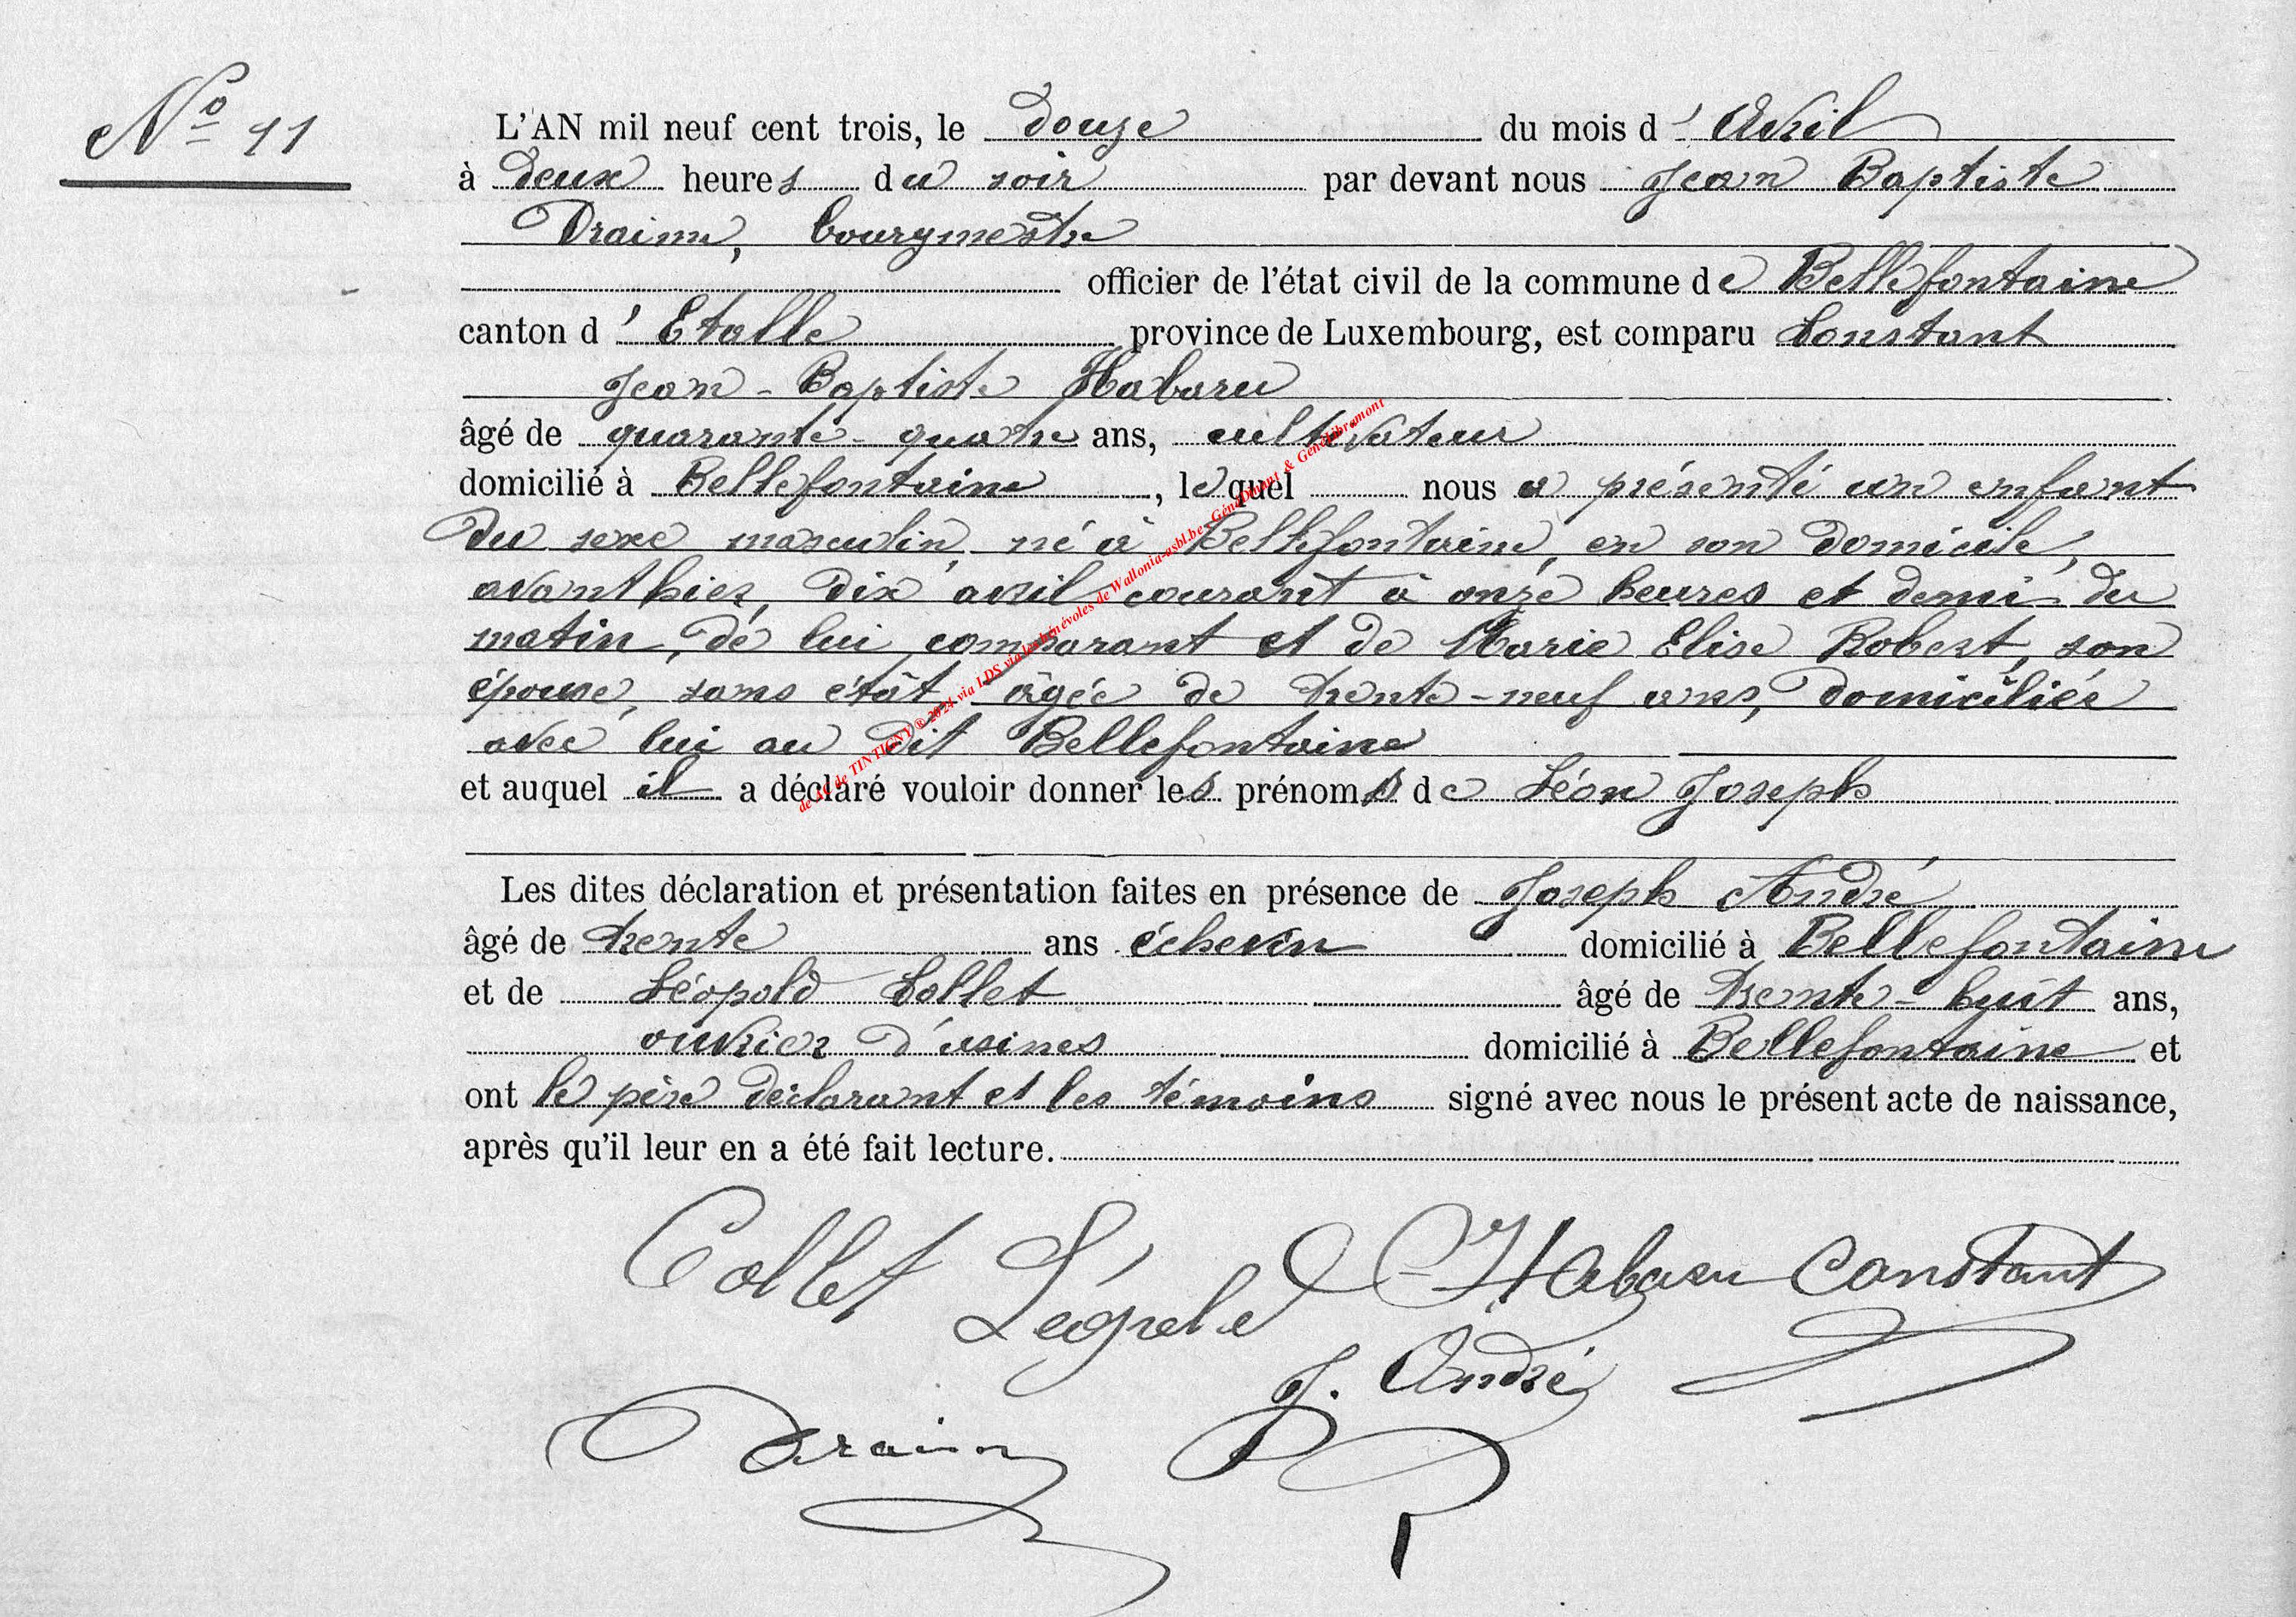 Nº 11
L'AN mil neuf cent trois, le douze du mois d'Avril
à deux heures du soir par devant nous Jean Baptiste
Draime, bourgmestre
officier de l'état civil de la commune de Bellefontaine
canton d'Etalle province de Luxembourg, est comparu Constant
Jean-Baptiste Habaru
âgé de quarante-quatre ans, cultivateur
domicilié à Bellefontaine, lequel nous a présenté un enfant
du sexe masculin, né à Bellefontaine, en son domicile,
avant hier, dix avril courant à onze heures et demi du
matin, de lui comparant et de Marie Elise Robert, son
épouse, sans état, âgée de trente-neuf ans, domiciliée
avec lui au dit Bellefontaine
et auquel il a déclaré vouloir donner les prénoms de Léon Joseph
Les dites déclaration et présentation faites en présence de Joseph André
âgé de trente ans échevin domicilié à Bellefontaine
et de Léopold Collet âgé de trente-huit ans,
ouvrier d'usines domicilié à Bellefontaine et
ont le père déclarant et les témoins signé avec nous le présent acte de naissance,
après qu'il leur en a été fait lecture.
Collet Habaru Constant
J. André
Draime
de AC de TINTIGNY ® 2024 via LDS via les bénévoles de Wallonia-asbl.be - GénéDinant & GénéLibramont